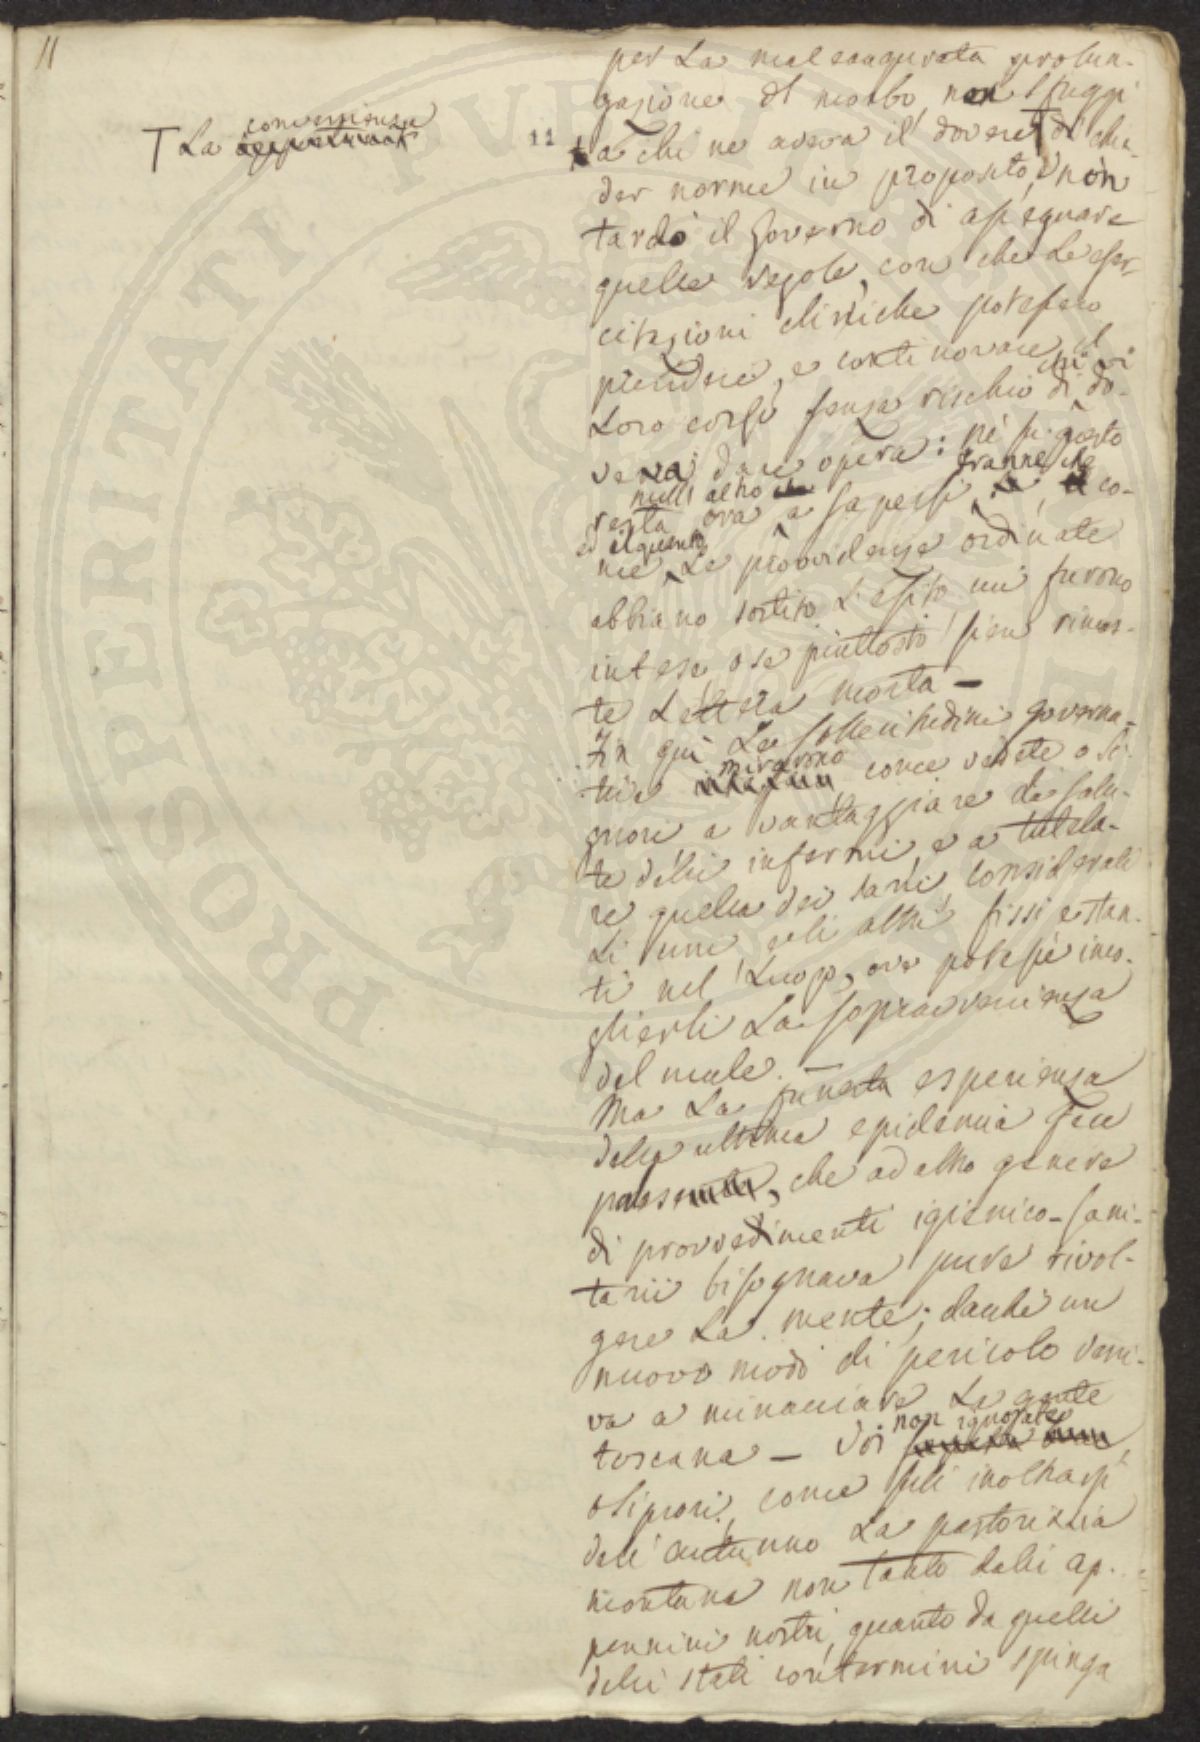 11
T La convenienza
11
per La malaugurata prolun-
gazione del morbo non sfuggì
a chi ne aveva il dovere T di chie-
der norme in proposito, e non
tardò il Governo di assegnare
quelle regole, con che Le eser-
citazioni cliniche potessero
prendere, e continovare il
Loro corso senza rischio di chi vi do-
veva dare opera: nè su questo
resta ora null'altro a sapersi, tranne che co-
me, ed il quanto Le providenze ordinate
abbiano sortito L'esito cui furono
intese, o se piuttosto sien rimas-
te Lettera morta —
Fin qui Le sollecitudini governa-
tive mirarono come vedete o Si-
gnori a vantaggiare la salu-
te delli infermi, e a tutela-
re quella dei sani, considerati
Li uni e li altri fissi e stan-
ti nel Luogo, ove potesse inco-
glierli La sopravvenienza
del male. —
Ma La funesta esperienza
della ultima epidemia fece
palese, che ad altro genere
di provvedimenti igienico-sani-
tarii bisognava pure rivol-
gere La mente; dachè un
nuovo modo di pericolo veni-
va a minacciare La gente
toscana — Voi non ignorate
o Signori, come sull'inoltrarsi
dell'autunno La pastorizia
montana non tanto dalli ap-
pennini nostri, quanto da quelli
delli stati contermini spinga